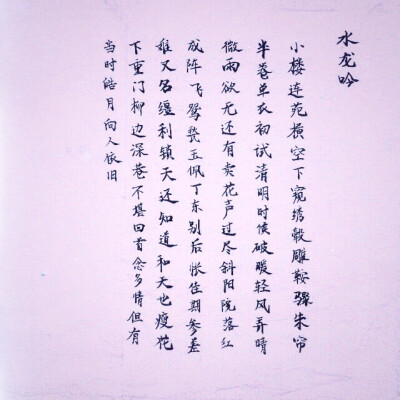 水龙吟
小楼连苑横空下窥绣毂雕鞍骤朱帘
半卷单衣初试清明时候破暖轻风弄晴
微雨欲无还有卖花声过尽斜阳院落红
成阵飞鸳甃玉佩丁东别后怅佳期参差
难又名缰利锁天还知道和天也瘦花
下重门柳边深巷不堪回首念多情但有
当时皓月向人依旧